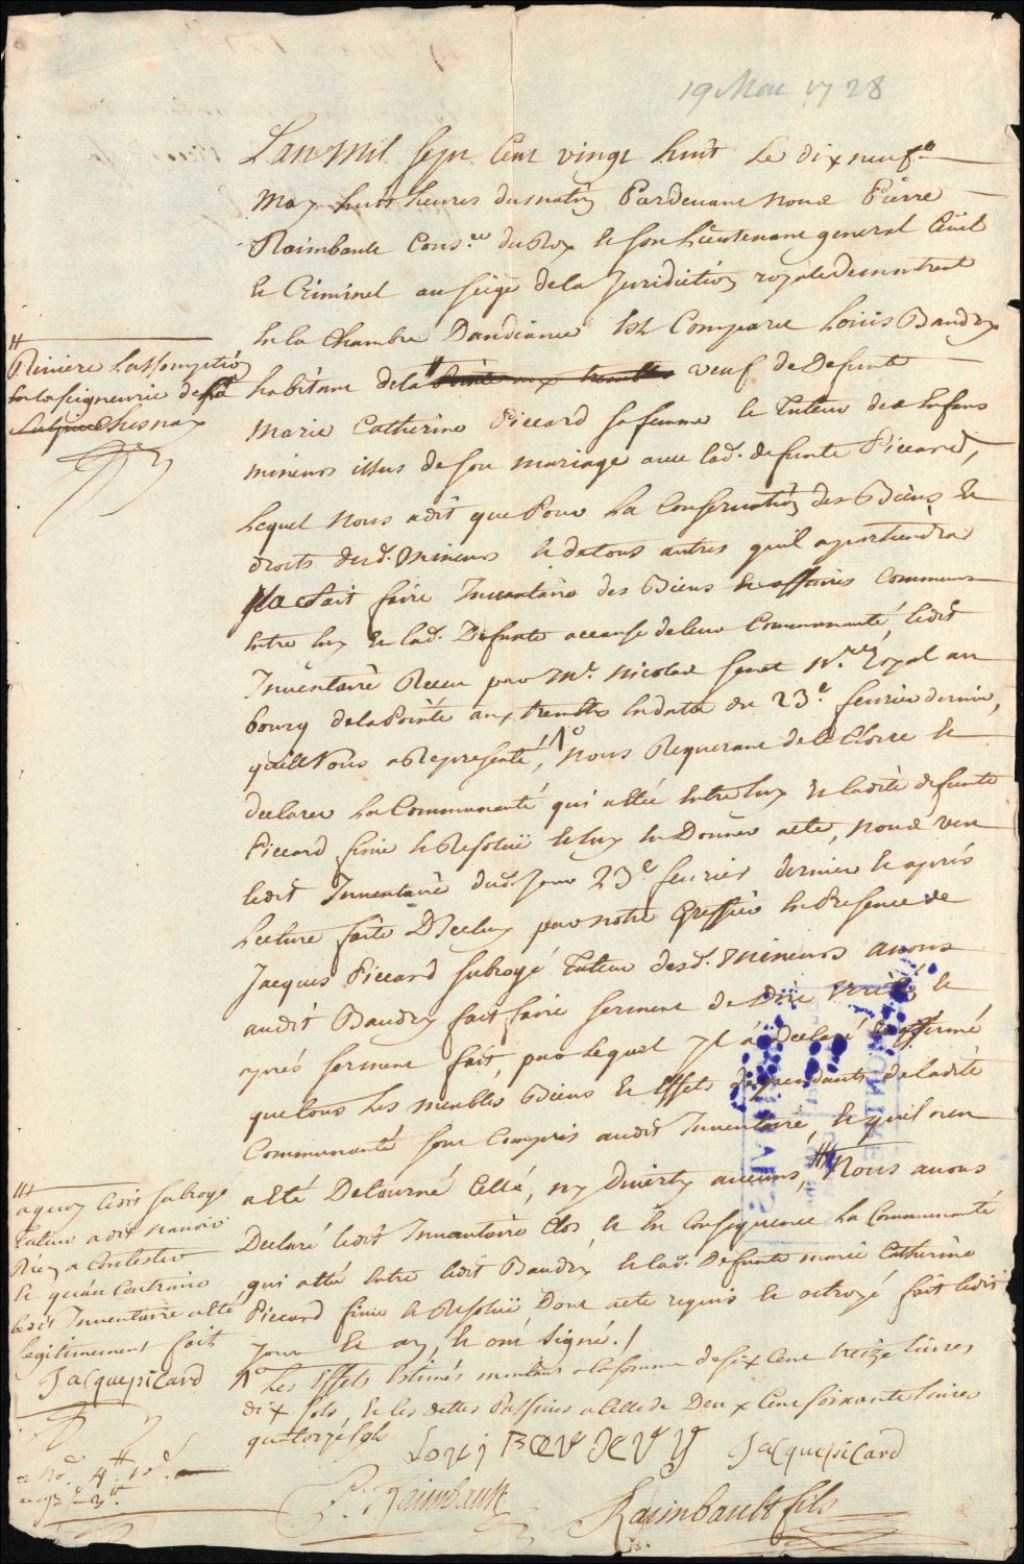 19 Mai 1728
L'an Mil Sept Cent vingt huit Le dix neufe
May huit heures du matin Pardevant Nous Pierre
Raimbault Cons.er du Roy et son Lieutenant general Civil
et Criminel au siege de la Juridiction royale de montreal
En la Chambre Daudiance Est Comparu Louis Baudry
habitant de la # Pointe aux trembles veuf de Defunte
Marie Catherine Piccard sa femme et Tuteur des Enfans
mineurs issus de son mariage avec lad. defunte Piccard,
Lequel Nous a dit que Pour La Conservation des Biens et
droits desd. Mineurs et de tous autres quil apartiendra
Il a fait faire Inventaire des Biens et affaires Communes
Entre luy et lad. Defunte acause de leur Communauté, ledit
Inventaire Receu par Me. Nicolas Senet N.re Royal au
bourg de la Pointe aux trembles En date du 23e fevrier dernier,
qu'il Nous a Representé, 1o Nous Requerant de le Clorre et
declarer La Communauté qui a été Entre luy et ladite defunte
Piccard finie et Resoluë et luy En Donner acte, Nous veu
ledit Inventaire dud. Jour 23e fevrier dernier et après
Lecture faite D'Iceluy par notre Greffier En Presence de
Jacques Piccard subrogé Tuteur desd. Mineurs avons
audit Baudry fait faire serment de Dire verité et
aprés serment fait, par lequel Il a Declaré et affirmé
que tous Les meubles Biens et Effets dependants de ladite
Communauté sont Compris audit Inventaire, et quil n'en
a été Detourné Cellé, ny Diverty aucuns, ### Nous avons
Declaré ledit Inventaire Clos, et En Consequence La Communauté
qui a été Entre ledit Baudry et lad. Defunte marie Catherine
Piccard finie et Resoluë Dont acte requis et octroyé fait ledit
Jour et an, et ont Signé. /
1o Les Effets Estimés montant a la somme de six Cent treize livres
dix sols, et les dettes Passives a Celle de Deux Cent soixante livres
quatorze sols
Jacquepicard
P. Raimbault
Raimbault fils
#
Riviere Lassomption
En la seigneurie de
Chesnay
###
aquoy ledit subrogé
Tuteur a dit n'avoir
Rien a Contester
et qu'au Contraire
ledit Inventaire a été
legitimement fait
Jacquepicard